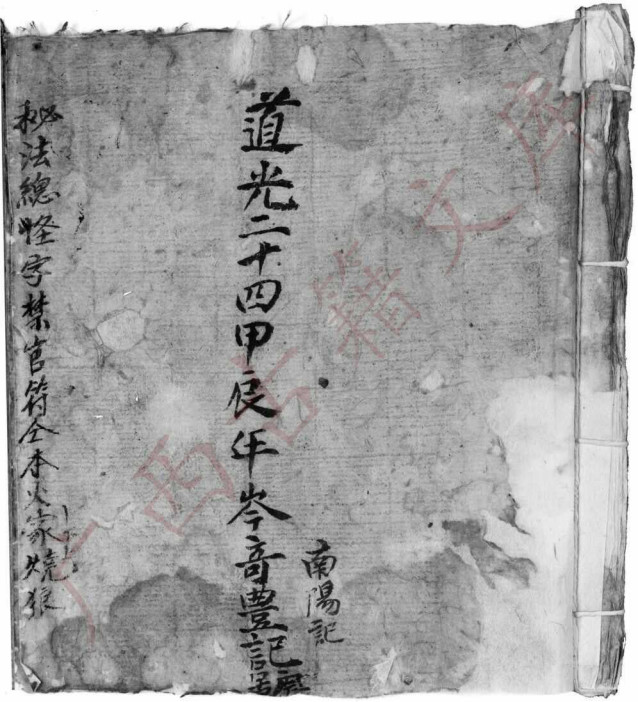 南陽記
道光二十四甲辰年岑奇豊記
秘法總怪字禁官符仝本火家燒狼
广西古籍文库